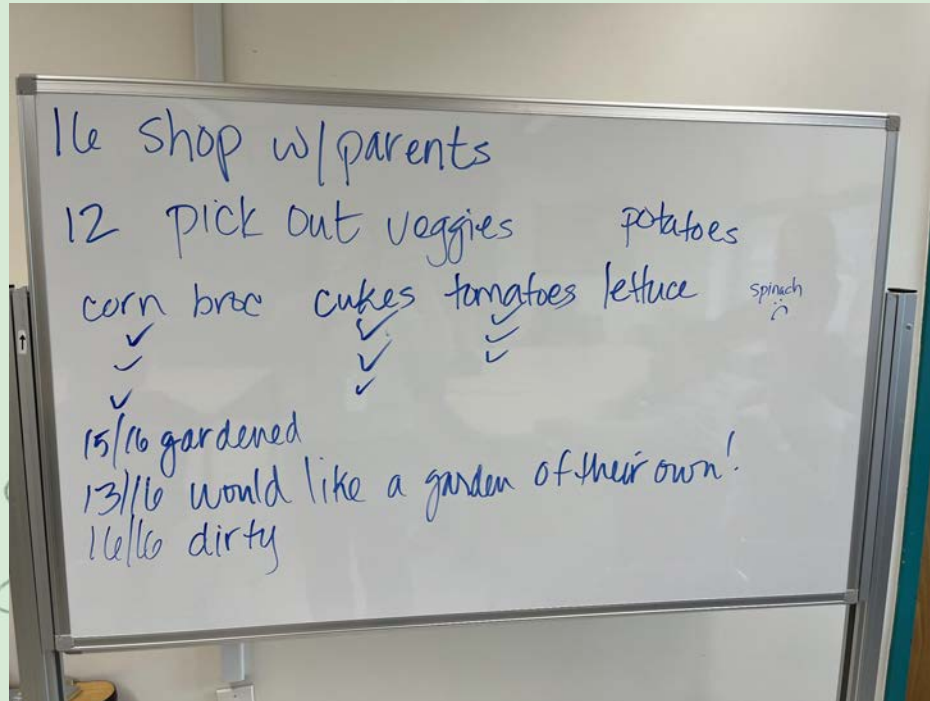 16 shop w/parents
12 pick out veggies potatoes
corn broc cukes tomatoes lettuce spinach
✓ ✓ ✓
✓ ✓ ✓
✓ ✓ ✓
15/16 gardened
13/16 would like a garden of their own!
16/16 dirty